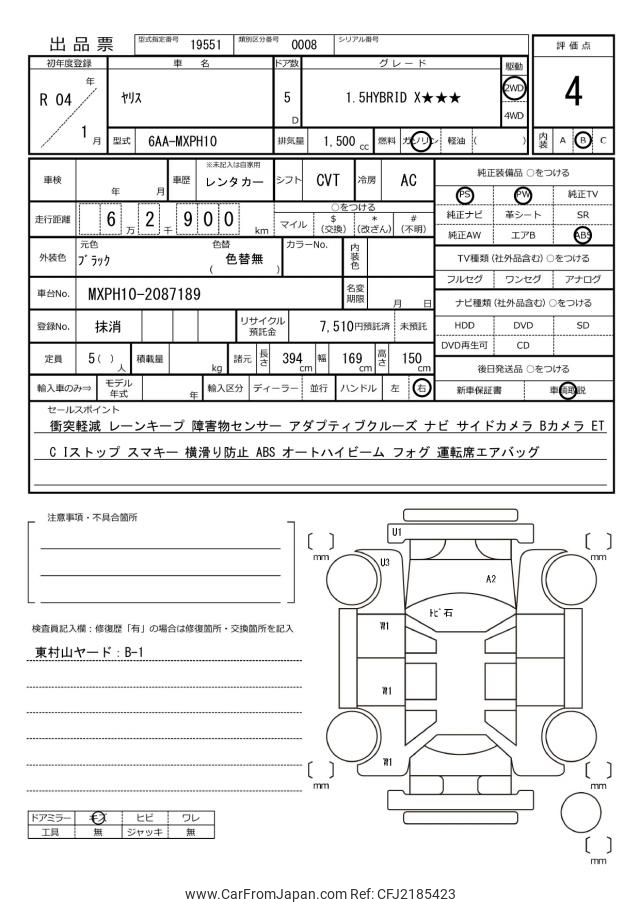 出品票 型式指定番号 19551 類別区分番号 0008 シリアル番号
評価点
4
初年度登録 車名 ドア数 グレード 駆動
R 04 年 1 月
ヤリス
5 D
1.5HYBRID X★★★
2WD
4WD
型式 6AA-MXPH10 排気量 1,500 cc 燃料 ガソリン 軽油 ( )
内装 A B C
車検 年 月 車歴 ※未記入は自家用 レンタカー シフト CVT 冷房 AC
純正装備品 ○をつける
PS PW 純正TV
純正ナビ 革シート SR
純正AW エアB ABS
走行距離 6 万 2 千 9 0 0 km
○をつける
マイル $ (交換) * (改ざん) # (不明)
外装色 元色 ブラック 色替 ( 色替無 ) カラーNo. 内装色
TV種類 (社外品含む) ○をつける
フルセグ ワンセグ アナログ
車台No. MXPH10-2087189 名変期限 月 日
ナビ種類 (社外品含む) ○をつける
HDD DVD SD
DVD再生可 CD
登録No. 抹消 リサイクル預託金 7,510円預託済 未預託
定員 5 ( ) 人 積載量 kg 諸元 長さ 394 cm 幅 169 cm 高さ 150 cm
後日発送品 ○をつける
新車保証書 車輌取説
輸入車のみ⇒ モデル年式 年 輸入区分 ディーラー 並行 ハンドル 左 右
セールスポイント
衝突軽減 レーンキープ 障害物センサー アダプティブクルーズ ナビ サイドカメラ Bカメラ ET
C Iストップ スマキー 横滑り防止 ABS オートハイビーム フォグ 運転席エアバッグ
注意事項・不具合箇所
検査員記入欄:修復歴「有」の場合は修復箇所・交換箇所を記入
東村山ヤード:B-1
U1
U3
A2
トビ石
W1
W1
W1
mm
mm
mm
mm
mm
ドアミラー キズ ヒビ ワレ
工具 無 ジャッキ 無
www.CarFromJapan.com Ref: CFJ2185423